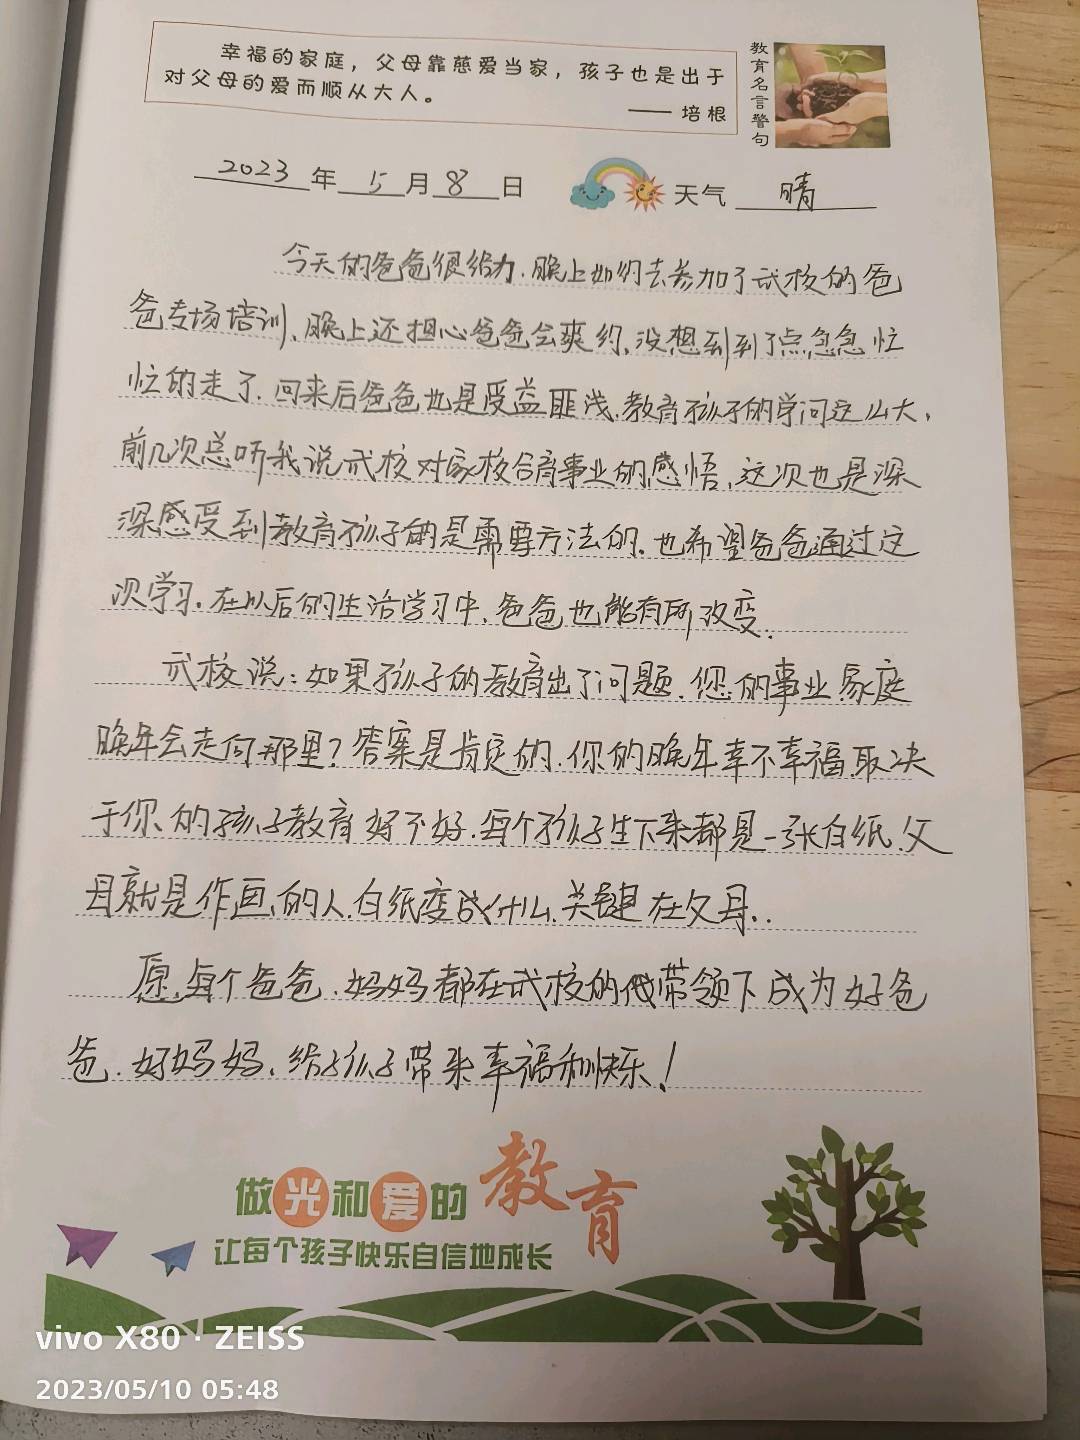 幸福的家庭，父母靠慈爱当家，孩子也是出于
对父母的爱而顺从大人。
—— 培根
教育名言警句
2023年5月8日 天气 晴
今天的爸爸很给力，晚上如约去参加了武校的爸
爸专场培训，晚上还担心爸爸会爽约，没想到到了点急急忙
忙的走了，回来后爸爸也是受益匪浅，教育孩子的学问这么大，
前几次总听我说武校对家校合育事业的感悟，这次也是深
深感受到教育孩子的是需要方法的，也希望爸爸通过这
次学习，在以后的生活学习中，爸爸也能有所改变。
武校说：如果孩子的教育出了问题，您的事业家庭
晚年会走向那里？答案是肯定的，你的晚年幸不幸福，取决
于你的孩子教育好不好，每个孩子生下来都是一张白纸，父
母就是作画的人，白纸变成什么，关键在父母..
愿每个爸爸、妈妈都在武校的带领下成为好爸
爸、好妈妈，给孩子带来幸福和快乐！
做光和爱的教育
让每个孩子快乐自信地成长
vivo X80 · ZEISS
2023/05/10 05:48